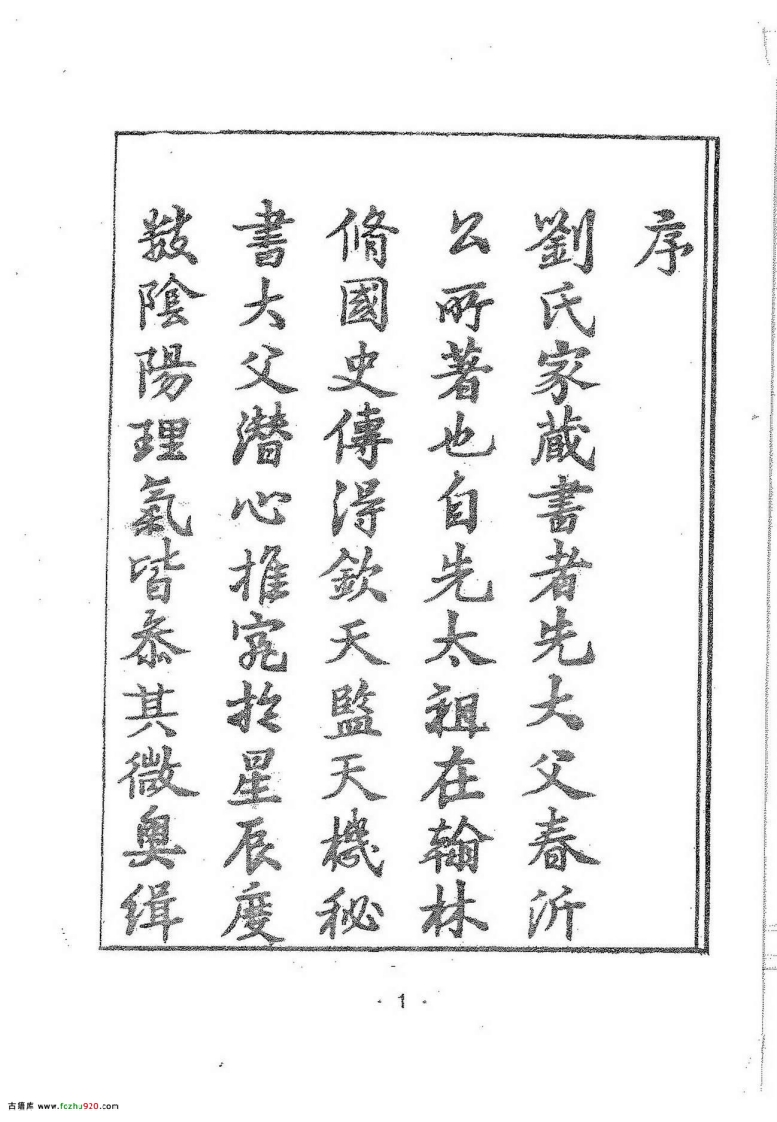 序
劉氏家蔵書者先大父春沂
公所著也自先太祖在翰林
脩國史傳得欽天監天機秘
書大父潛心推究於星辰度
数陰陽理氣皆叅其微奥缉
· 1 ·
古籍库 www.fozhu920.com